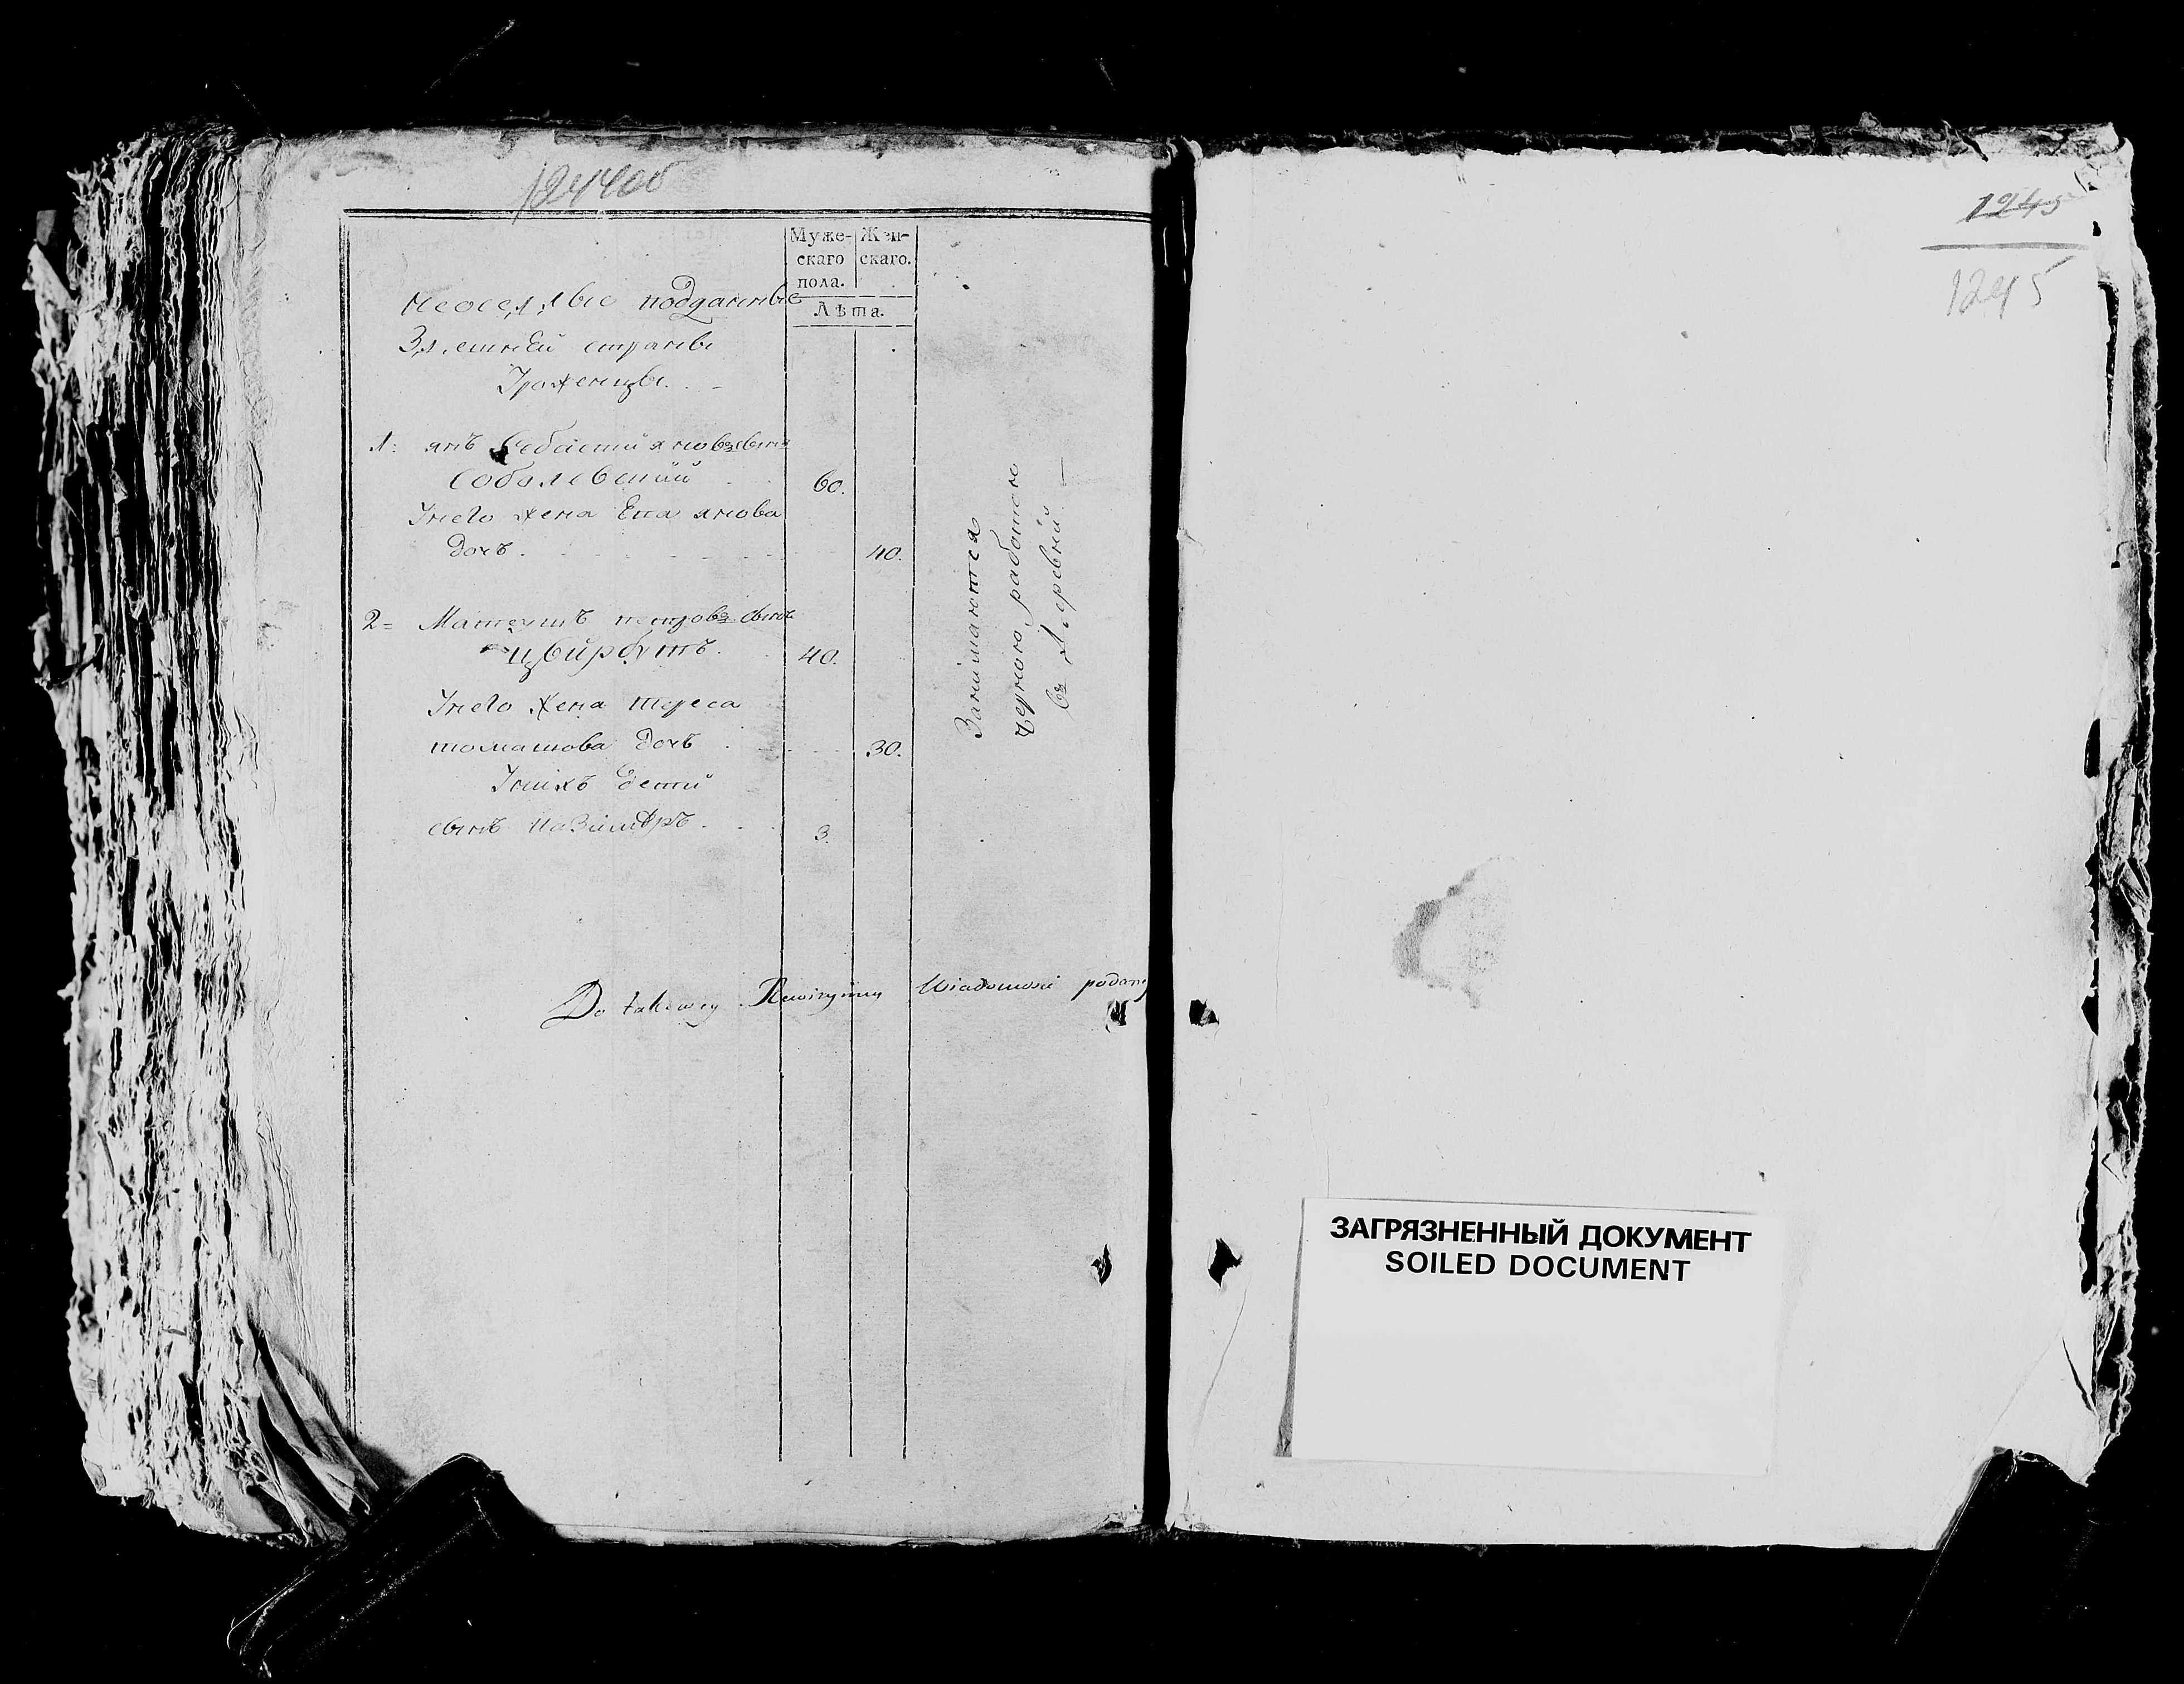 1244об
Муже-
скаго
пола.
Жен-
скаго.
Лѣта.
неоселые подданные
Здешней страны
Уроженцы.
1: янъ Себастияновъ сынъ
Соболевский 60.
Унего жена Ева янова
дочъ. 40.
2= Матеушъ петровъ сынъ
Цвирбутъ. 40.
Унего жена тереса
томашова дочъ 30.
Унихъ дети
сынъ казимѣръ. 3.
Занимаются
черною работою
въ деревни —
Do takowey Rewizyiney Wiadomosci
1245
1245
ЗАГРЯЗНЕННЫЙ ДОКУМЕНТ
SOILED DOCUMENT